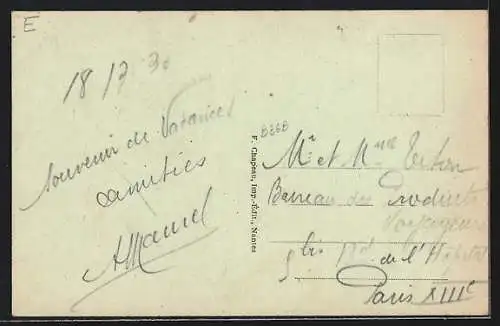 E
18 7 30
Souvenir de Vacances
amitiés
AMamel
F. Chapeau, Imp.-Édit., Nantes
Mr et Mme
Bureau des Produits
5 bis Bd de l'Hôpital
Paris XIIIe